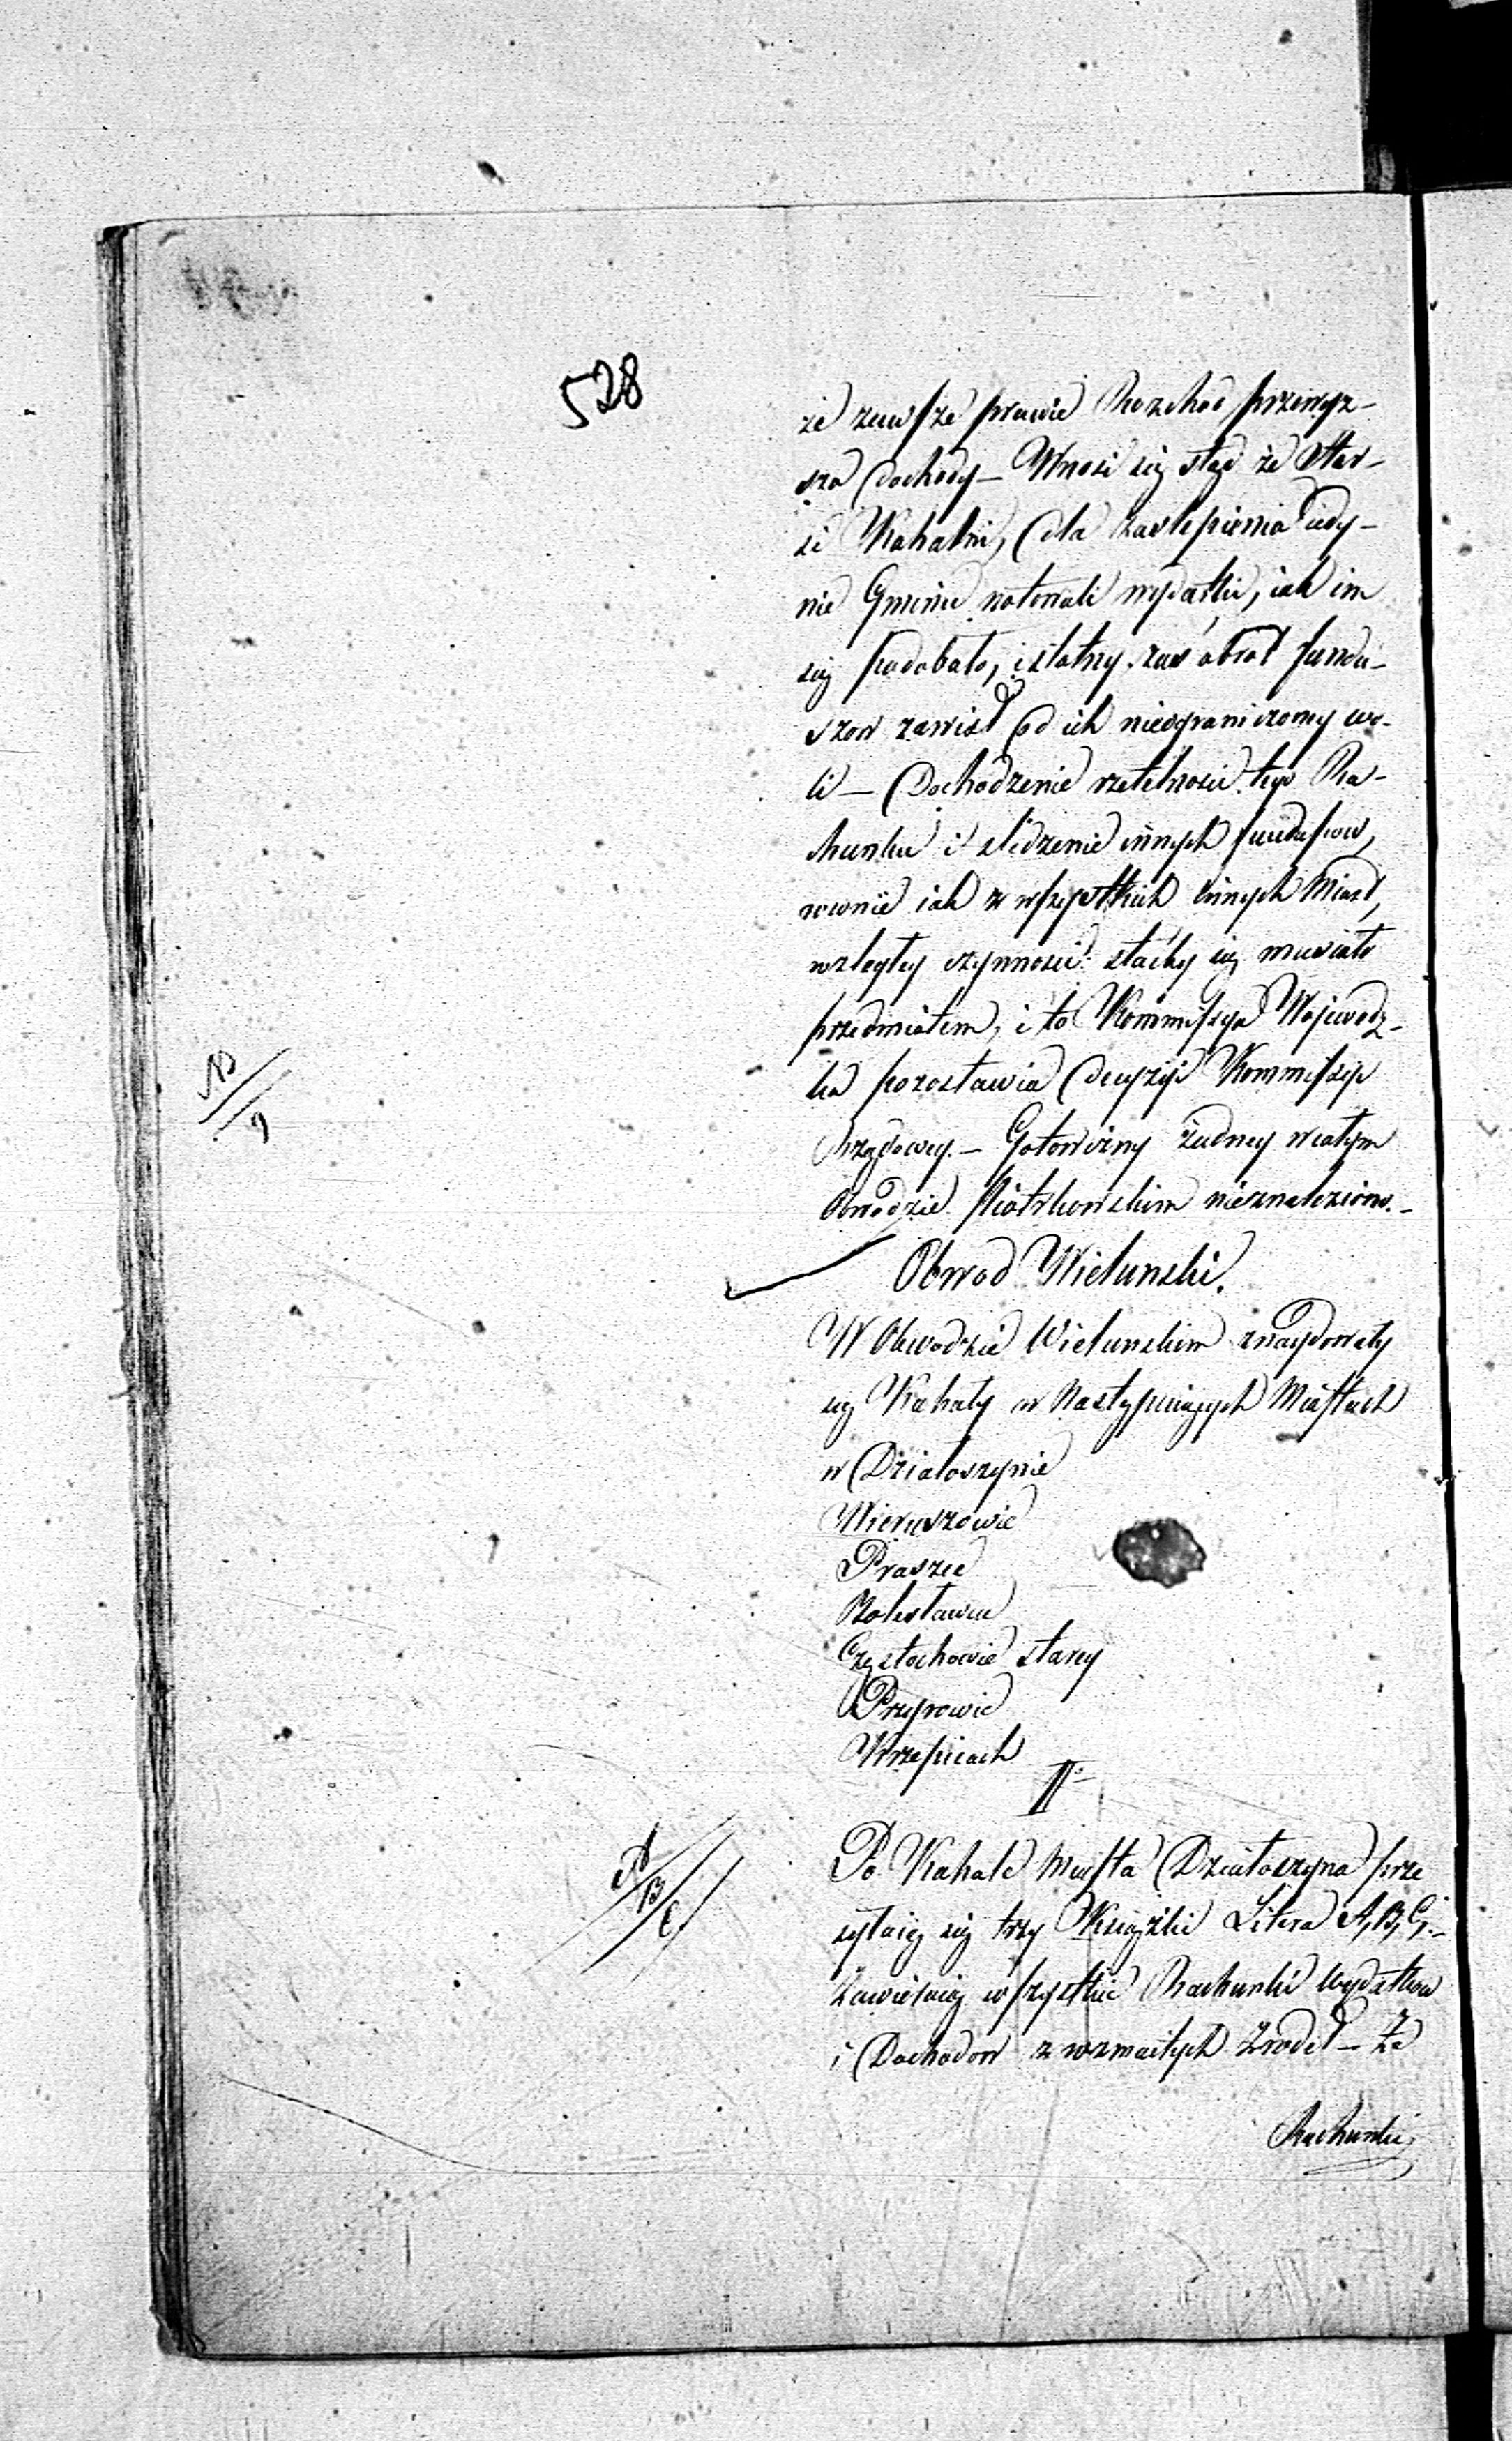 528
że zawsze prawie Rozchod przewyz-
sza dochody – Wnosi się stąd że Star-
si Kahalni, dla zaslepienia iedy-
nie Gminu notowali wydatki, iak im
się podobało, istotny zaś obrot fundu-
szow zawisł od ich nieograniczoney wo-
li – Dochodzenie rzetelności tego Ra-
chunku i sledzenie innych funduszow,
rownie iak w wszystkich innych Miast,
czynności stać by się musiało
przedmiotem, i to Kommissya Wojewodz-
ka pozostawia decyzyi Kommissyi
Rządowey. – Gotowizny żadney w całym
Obwodzie Piotrkowskim nieznaleziono. –
Obwod Wielunski.
W Obwodzie Wielunskim znaydowały
się Kahały w Następuiących Miastach
w Działoszynie
Wieruszowie
Praszce
Bolesławcu
Częstochowie starey
Przyrowie
Krzepicach
II.
B/9
A/B/C/
Po Kahale Miasta Działoszyna prze
syłaią się trzy Książki Litera A, B, C, –
Zawieraią wszystkie Rachunki Wydatkow
i Dochodow z rozmaitych Zrodeł – Że
Rachunki